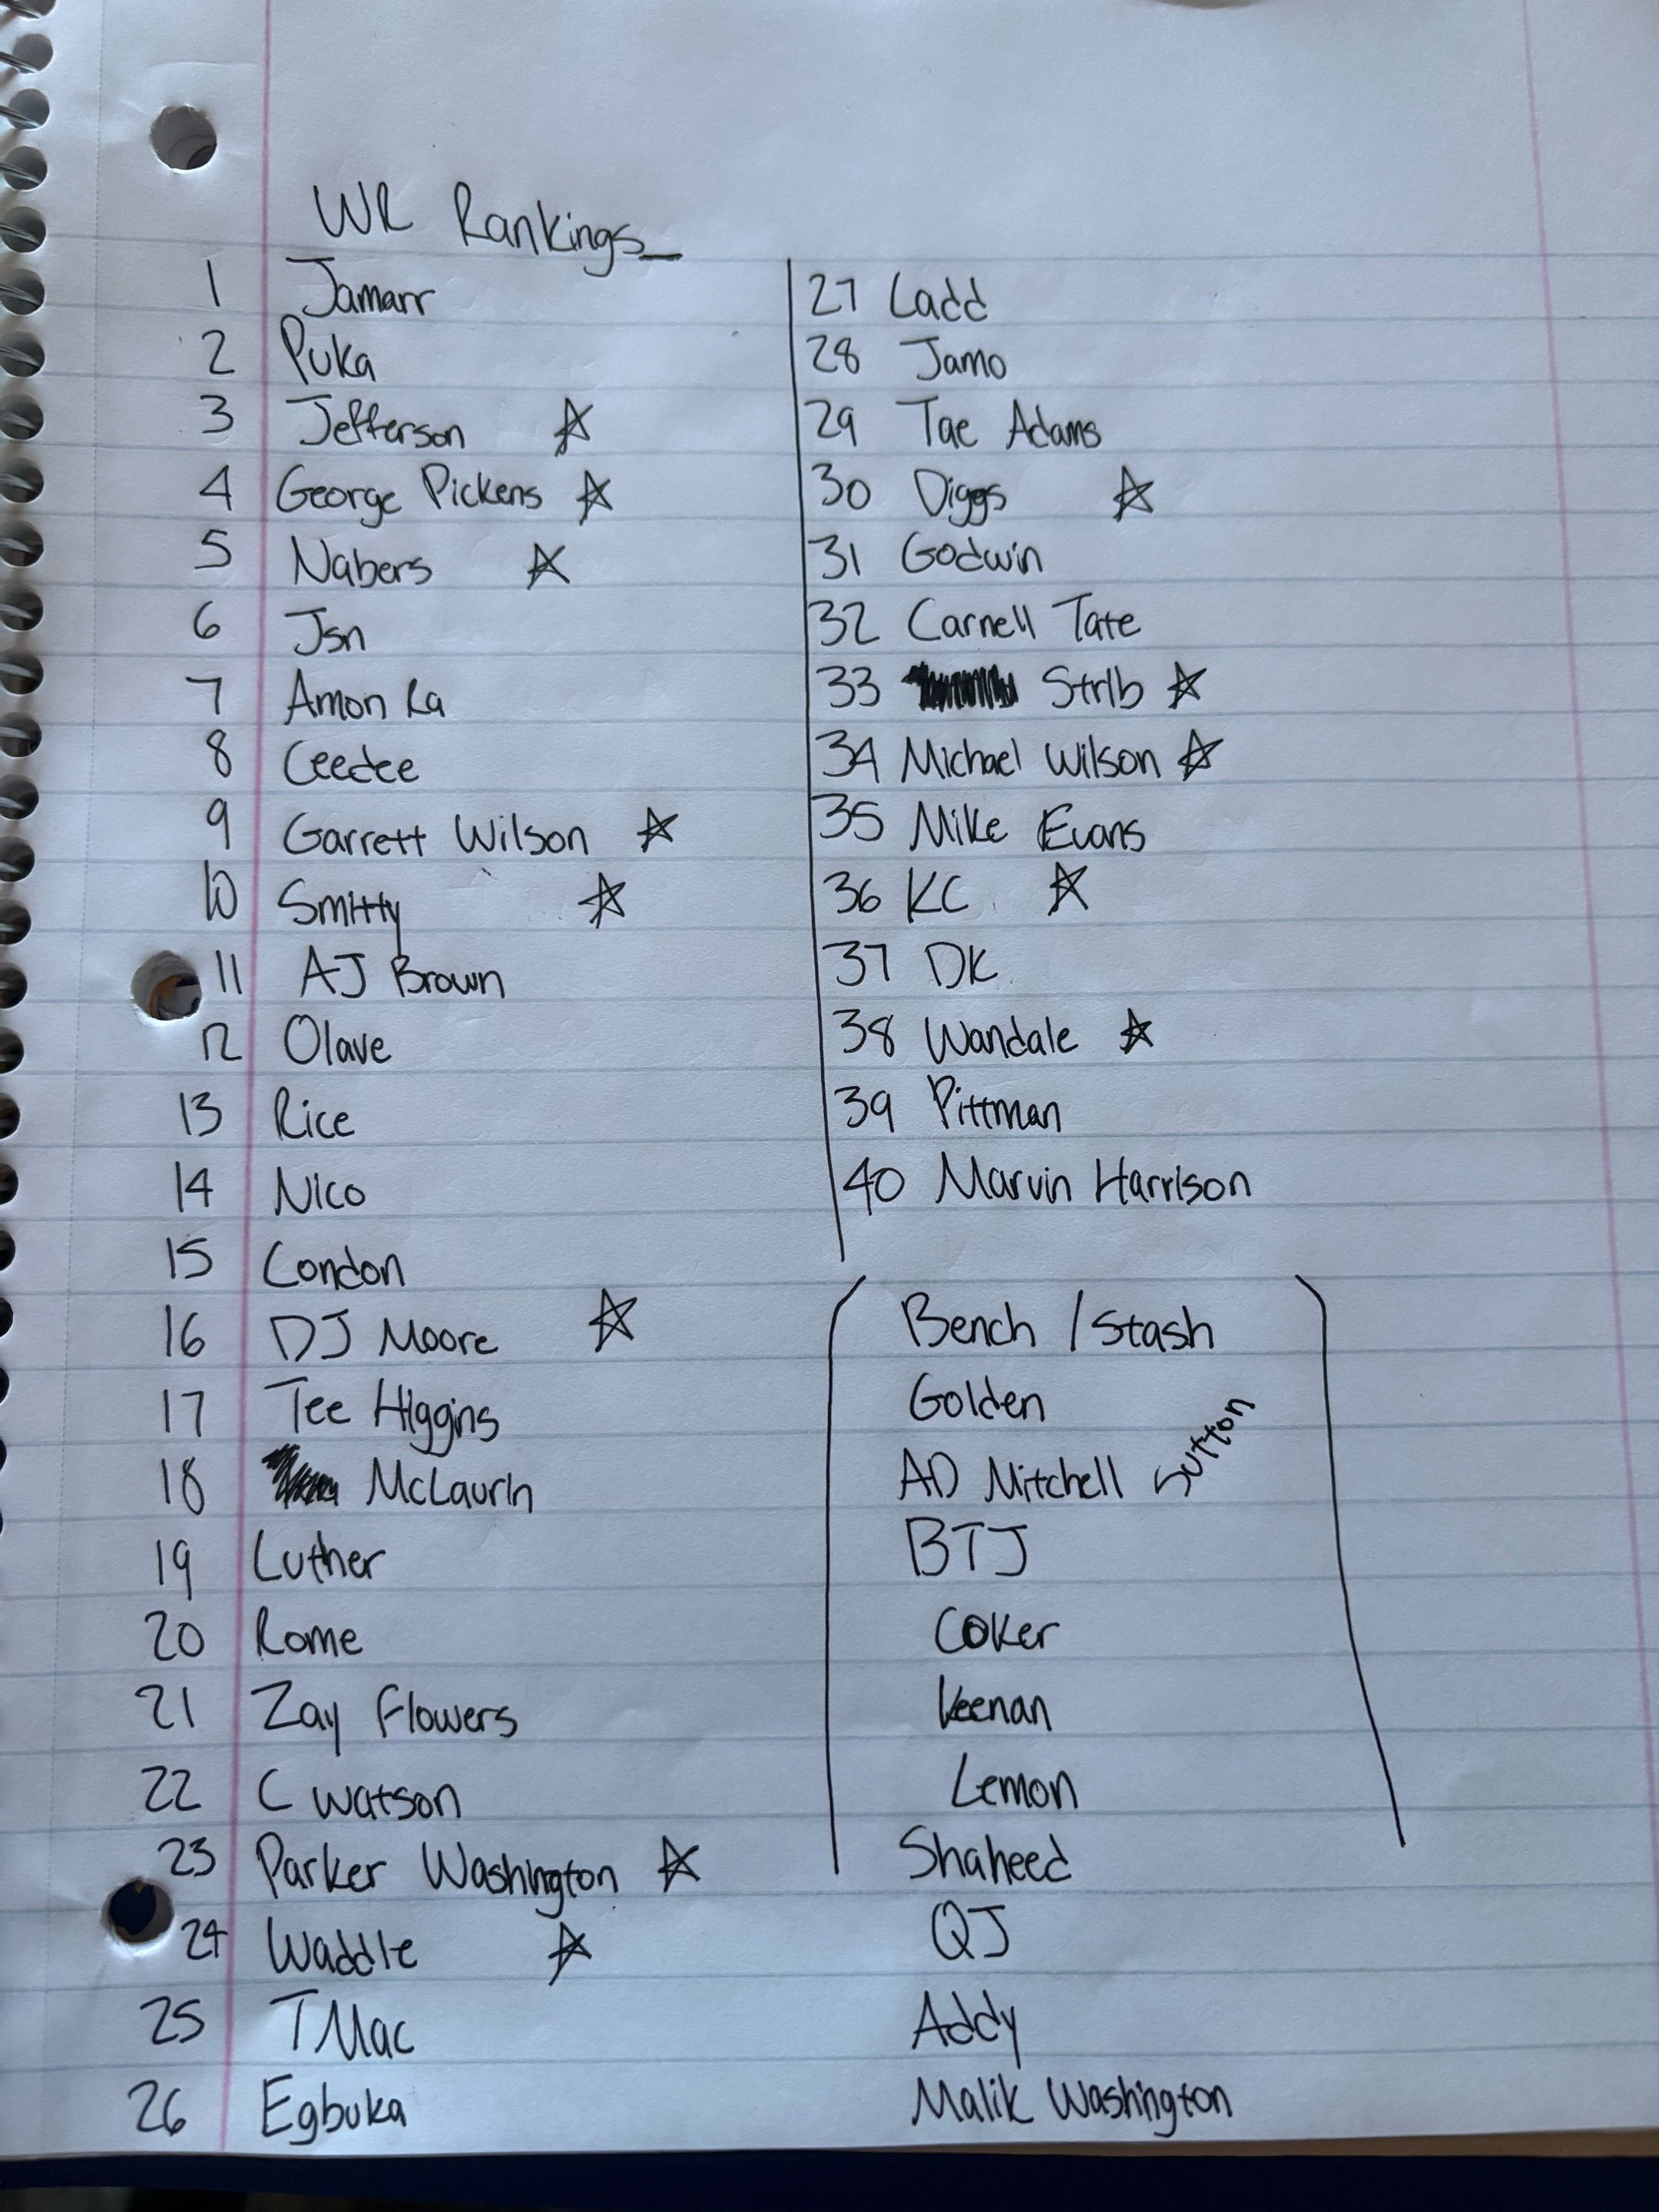 WR Rankings
1 Jamarr
2 Puka
3 Jefferson ☆
4 George Pickens ☆
5 Nabers ☆
6 Jsn
7 Amon Ra
8 Ceedee
9 Garrett Wilson ☆
10 Smitty ☆
11 AJ Brown
12 Olave
13 Rice
14 Nico
15 London
16 DJ Moore ☆
17 Tee Higgins
18 McLaurin
19 Luther
20 Rome
21 Zay Flowers
22 C Watson
23 Parker Washington ☆
24 Waddle ☆
25 T Mac
26 Egbuka
27 Ladd
28 Jamo
29 Tae Adams
30 Diggs ☆
31 Godwin
32 Carnell Tate
33 Strib ☆
34 Michael Wilson ☆
35 Mike Evans
36 KC ☆
37 DK
38 Wandale ☆
39 Pittman
40 Marvin Harrison
Bench / Stash
Golden
AD Mitchell Sutton
BTJ
Coker
Keenan
Lemon
Shaheed
QJ
Addy
Malik Washington